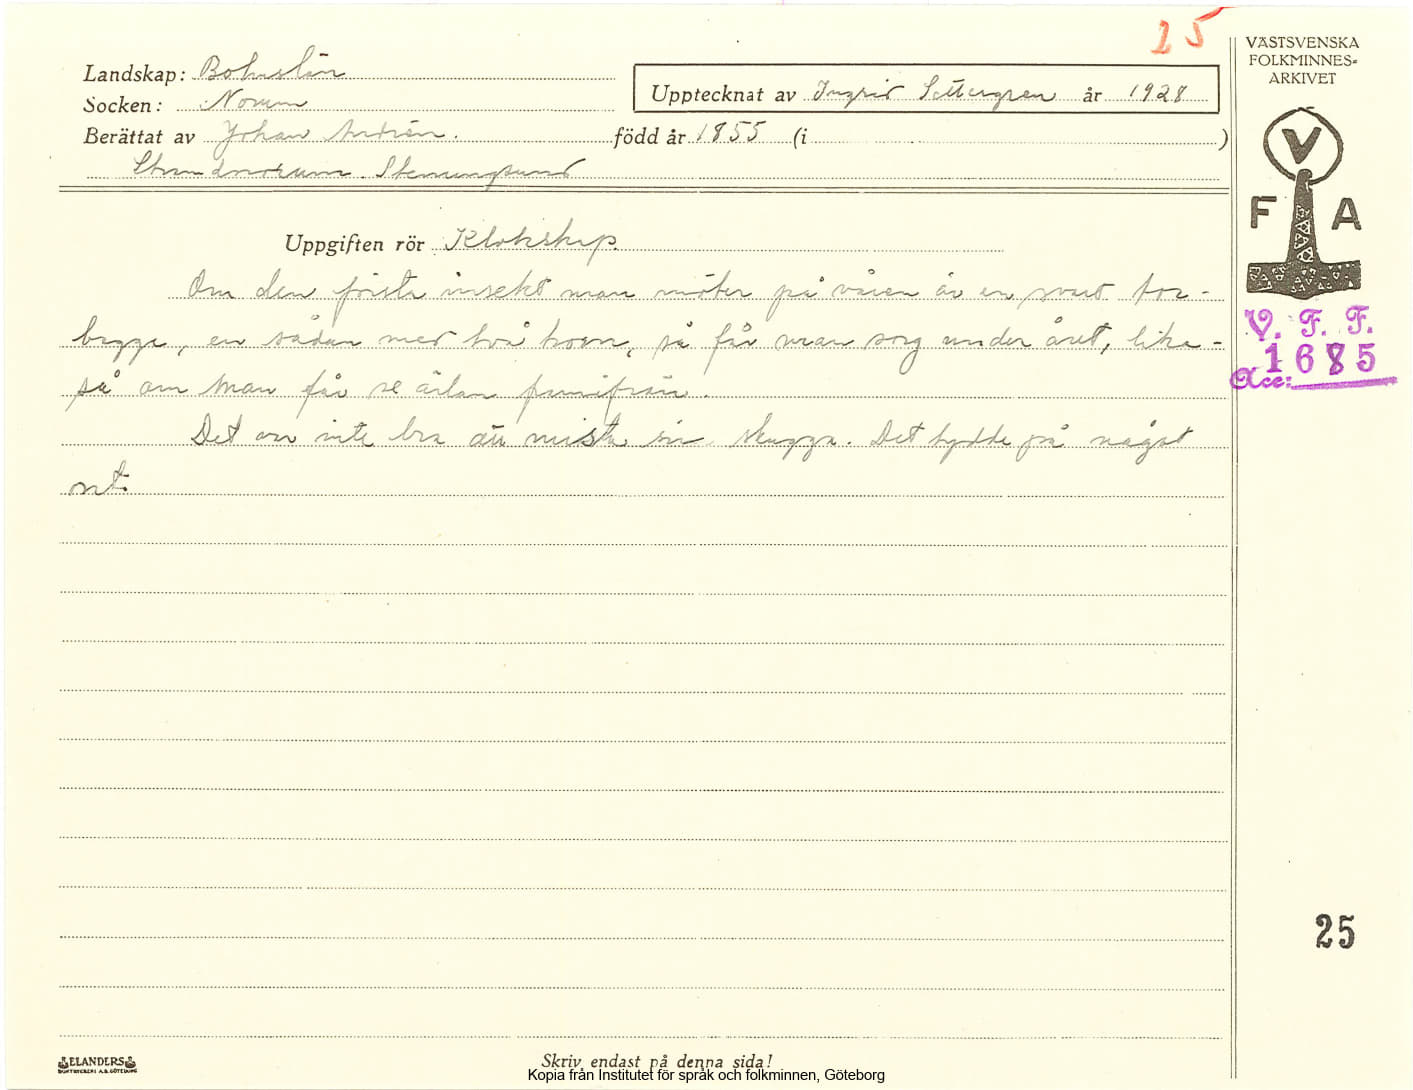 25
VÄSTSVENSKA
FOLKMINNES-
ARKIVET
Landskap: Bohuslän
Socken: Norum
Upptecknat av Ingrid Settergren år 1928
Berättat av Johan Andrén. född år 1855 (i )
Strandnorum. Stenungsund
V
F A
Uppgiften rör Klokskap.
Om den första insekt man möter på våren är en svart tor-
bagge, en sådan med två horn, så får man sorg under året, lika-
så om man får se ärlan framifrån.
Det var inte bra att mista sin skugga. Det tydde på något
ont.
V. F. F.
Acc: 1685
25
ELANDERS
BOKTRYCKERI A.B. GÖTEBORG
Skriv endast på denna sida!
Kopia från Institutet för språk och folkminnen, Göteborg